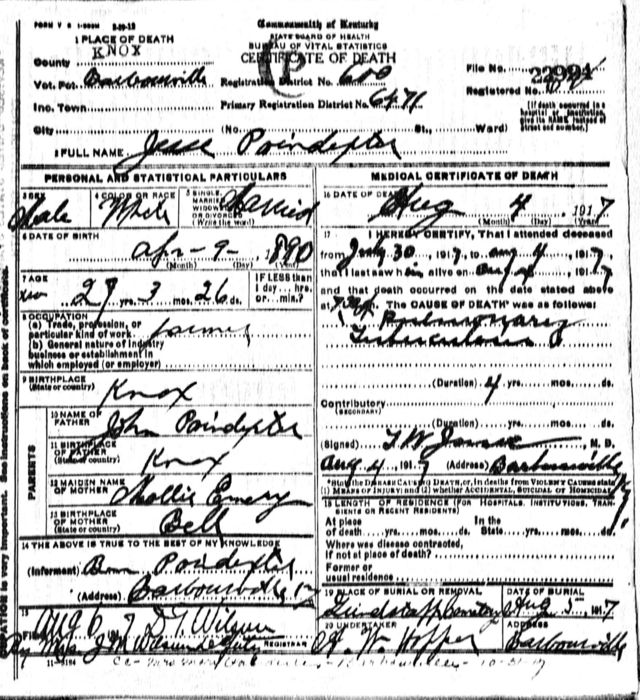 FORM V S 1-
Commonwealth of Kentucky
STATE BOARD OF HEALTH
BUREAU OF VITAL STATISTICS
CERTIFICATE OF DEATH
1 PLACE OF DEATH
County KNOX
Vot. Pct. Barbourville
Inc. Town
City (No. St., Ward)
Registration District No. 600
Primary Registration District No. 6471
File No. 22994
Registered No.
[If death occurred in a hospital or institution, give its NAME instead of street and number.]
2 FULL NAME Jesse Poindexter
PERSONAL AND STATISTICAL PARTICULARS
3 SEX Male
4 COLOR OR RACE White
5 SINGLE, MARRIED, WIDOWED OR DIVORCED (Write the word) Married
6 DATE OF BIRTH Apr - 9 - 1890
(Month) (Day) (Year)
7 AGE 27 yrs. 3 mos. 26 ds.
IF LESS than 1 day... hrs. or... min.?
8 OCCUPATION
(a) Trade, profession, or particular kind of work farmer
(b) General nature of industry business or establishment in which employed (or employer)
9 BIRTHPLACE (State or country) Knox
PARENTS
10 NAME OF FATHER John Poindexter
11 BIRTHPLACE OF FATHER (State or country) Knox
12 MAIDEN NAME OF MOTHER Mollie Emery
13 BIRTHPLACE OF MOTHER (State or country) Bell
14 THE ABOVE IS TRUE TO THE BEST OF MY KNOWLEDGE
(Informant) Ben Poindexter
(Address) Barbourville Ky
15
Filed Aug 6 7 D T Wilson
By Mrs J M Wilson Deputy REGISTRAR
11-3184
MEDICAL CERTIFICATE OF DEATH
16 DATE OF DEATH Aug 4 1917
(Month) (Day) (Year)
17 I HEREBY CERTIFY, That I attended deceased
from July 30, 1917, to Aug 4, 1917,
that I last saw him alive on Aug 4, 1917
and that death occurred on the date stated above
at 7 30 P. The CAUSE OF DEATH* was as follows:
Pulmonary
Tuberculosis
(Duration) 4 yrs. mos. ds.
Contributory
(SECONDARY)
(Duration) yrs. mos. ds.
(Signed) T W Jones, M. D.
Aug 4, 1917 (Address) Barbourville Ky
*State the DISEASE CAUSING DEATH, or, in deaths from VIOLENT CAUSES state (1) MEANS OF INJURY; and (2) whether ACCIDENTAL, SUICIDAL OR HOMICIDAL
18 LENGTH OF RESIDENCE (FOR HOSPITALS, INSTITUTIONS, TRANSIENTS OR RECENT RESIDENTS)
At place of death yrs. mos. ds. In the State yrs. mos. ds.
Where was disease contracted,
if not at place of death?
Former or
usual residence
19 PLACE OF BURIAL OR REMOVAL Cemetery
DATE OF BURIAL Aug 5 1917
20 UNDERTAKER W Hopper
ADDRESS Barbourville